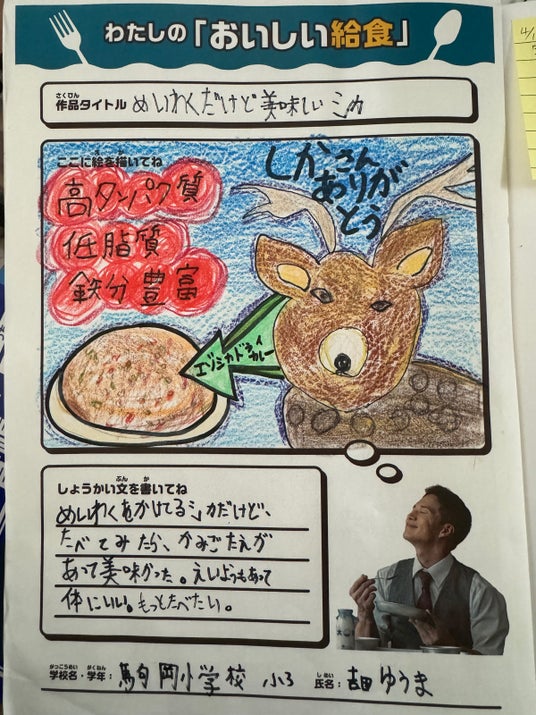 わたしの「おいしい給食」
さくひん
作品タイトル めいわくだけど美味しいシカ
ここに絵を描いてね
しかさん
ありが
とう
高タンパク質
低脂質
鉄分豊富
エゾシカドライ
カレー
しょうかい文を書いてね
めいわくをかけてるシカだけど、
たべてみたら、かみごたえが
あって美味かった。えいようもあって
体にいい。もっとたべたい。
学校名・学年: 駒岡小学校 小3 氏名: 吉田ゆうま